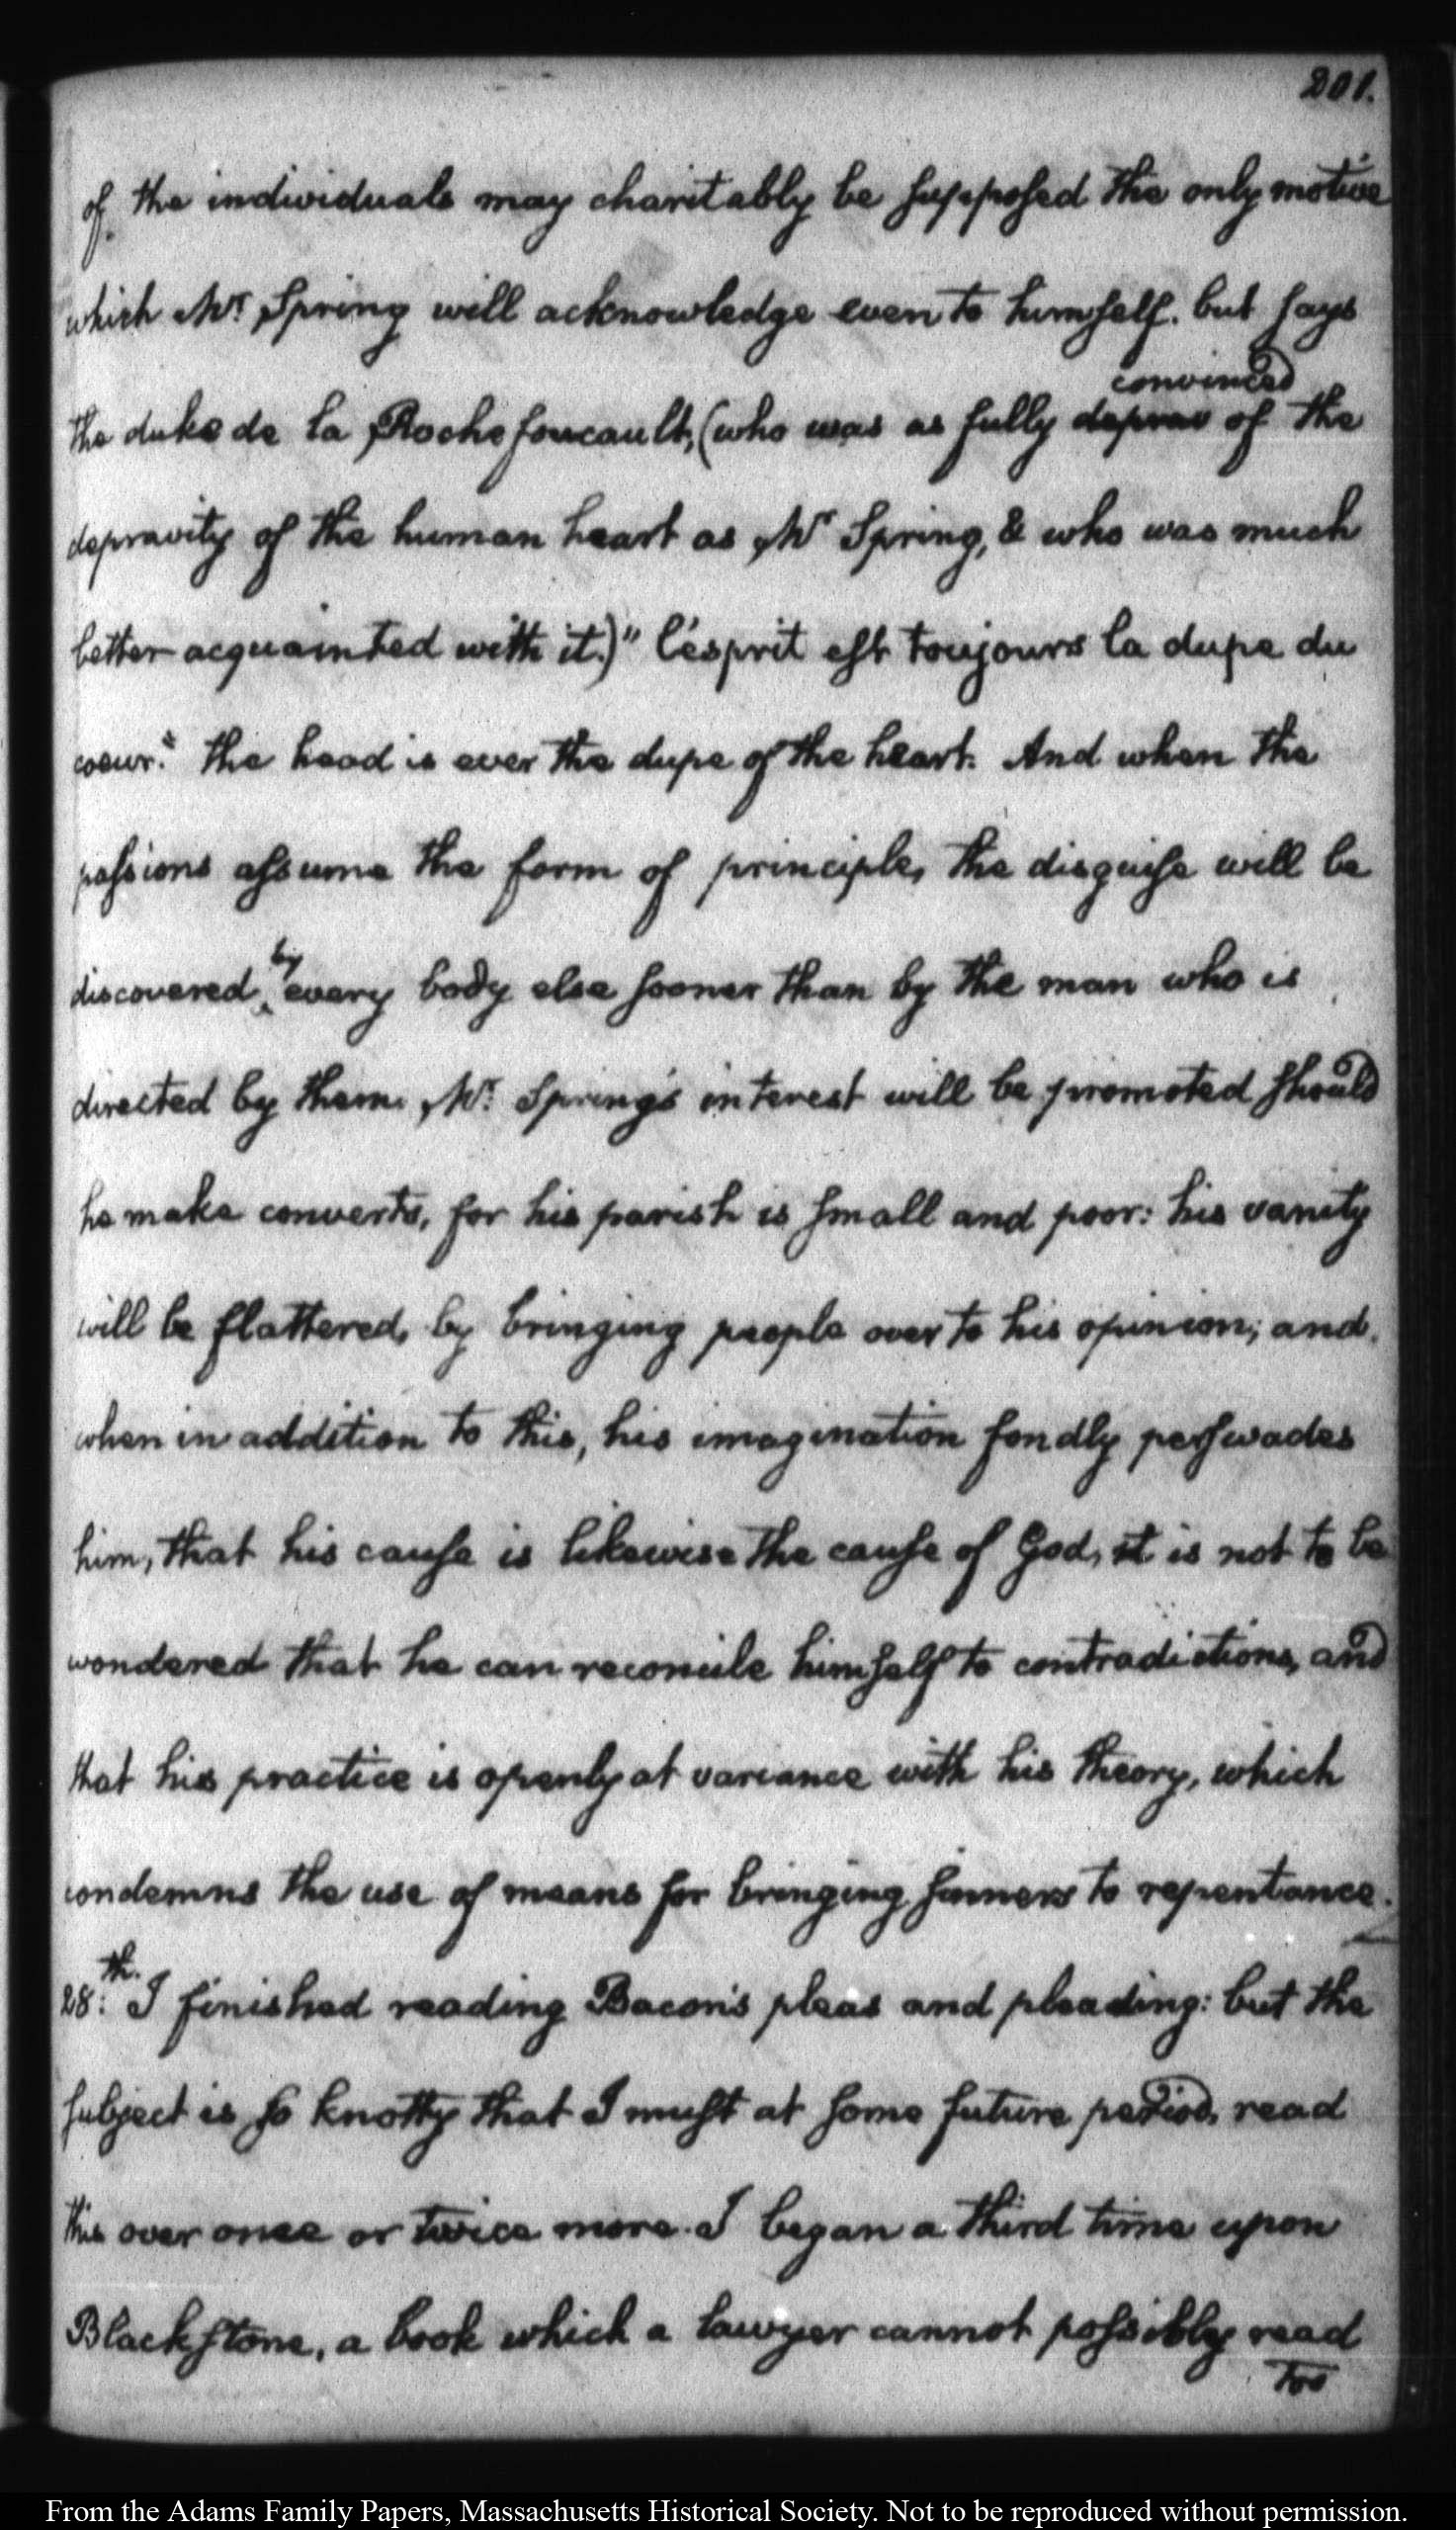 201.
of the individuals may charitably be supposed the only motive
which Mr. Spring will acknowledge even to himself. but says
convinced
the duke de la Rochefoucault, (who was as fully deprav of the
depravity of the human heart as Mr Spring, & who was much
better acquainted with it.)" l'esprit est toujours la dupe du
coeur." the head is ever the dupe of the heart. And when the
passions assume the form of principle, the disguise will be
by
discovered, every body else sooner than by the man who is
directed by them. Mr. Spring's interest will be promoted should
he make converts, for his parish is small and poor: his vanity
will be flattered, by bringing people over to his opinion; and
when in addition to this, his imagination fondly perswades
him, that his cause is likewise the cause of God, it is not to be
wondered that he can reconcile himself to contradictions, and
that his practice is openly at variance with his theory, which
condemns the use of means for bringing sinners to repentance.
28th. I finished reading Bacon's pleas and pleading: but the
subject is so knotty that I must at some future period, read
this over once or twice more. I began a third time upon
Blackstone, a book which a lawyer cannot possibly read
too
From the Adams Family Papers, Massachusetts Historical Society. Not to be reproduced without permission.